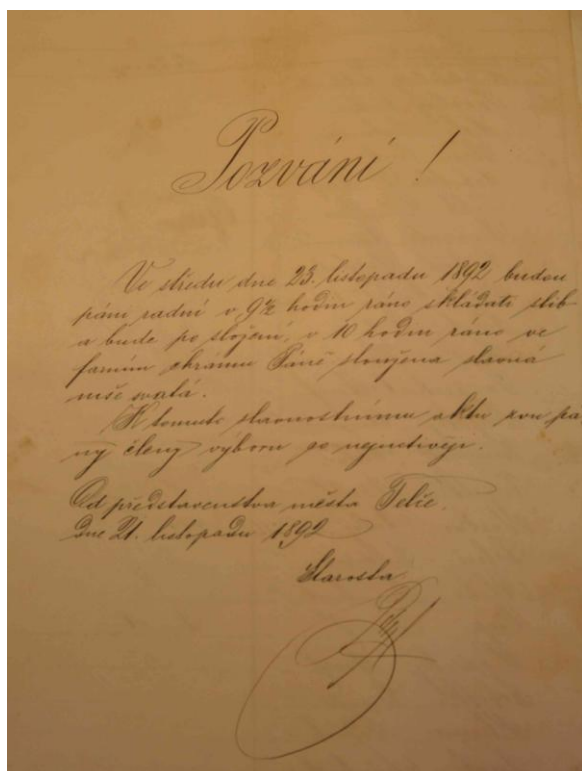 Pozvání!
Ve středu dne 23. listopadu 1892 budou
páni radní v 9½ hodin ráno skládati slib
a bude po složení, v 10 hodin ráno ve
farním chrámu Páně sloužena slavná
mše svatá.
K tomuto slavnostnímu aktu zvu pá-
ny členy výboru co nejuctivěji.
Od představenstva města Telče.
Dne 21. listopadu 1892
Starosta